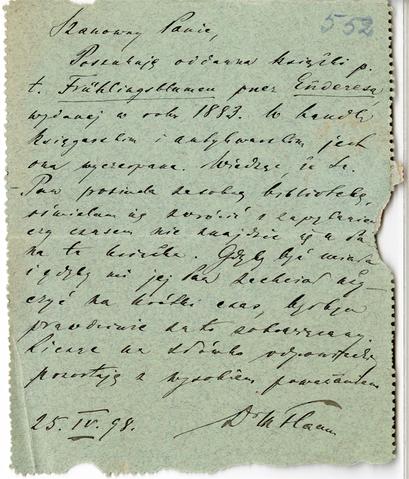 552
Szanowny Panie,
Poszukuję oddawna książki p.
t. Frühlingsblumen przez Enderesa
wydanej w roku 1883. W handlu
księgarskim i antykwarskim jest
ona wyczerpana. Wiedząc, że Sz.
Pan posiada zasobną bibliotekę,
ośmielam się zwrócić z zapytaniem
czy czasem nie znajdzie się u Pana
na ta książka. Gdyby był miała
i gdyby mi jej Pan zechciał uży-
czyć na krótki czas, byłbym
prawdziwie za to zobowiązany.
Liczę na słówko odpowiedzi
pozostaję z wysokiem poważaniem
25. IV. 98. Dr M Flaum